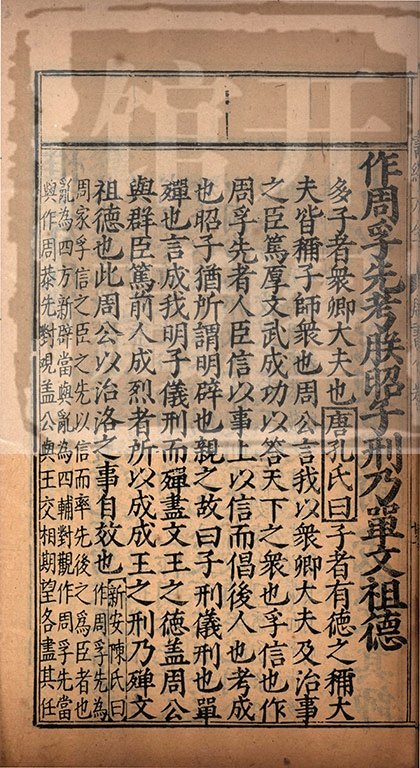 作周孚先考朕昭子刑乃單文祖德
多子者衆卿大夫也唐孔氏曰子者有德之稱大
夫皆稱子師衆也周公言我以衆卿大夫及治事
之臣篤厚文武成功以答天下之衆也孚信也作
周孚先者人臣信以事上以信而倡後人也考成
也昭子猶所謂明辟也親之故曰子刑儀刑也單
殫也言成我明子儀刑而殫盡文王之德蓋周公
與群臣篤前人成烈者所以成成王之刑乃殫文
祖德也此周公以治洛之事自效也新安陳氏曰作周孚先為
周家孚信之臣之先以信而率先後之為臣者也
亂為四方新辟當與亂為四輔對觀作周孚先當
與作周恭先對觀蓋公與王交相期望各盡其任